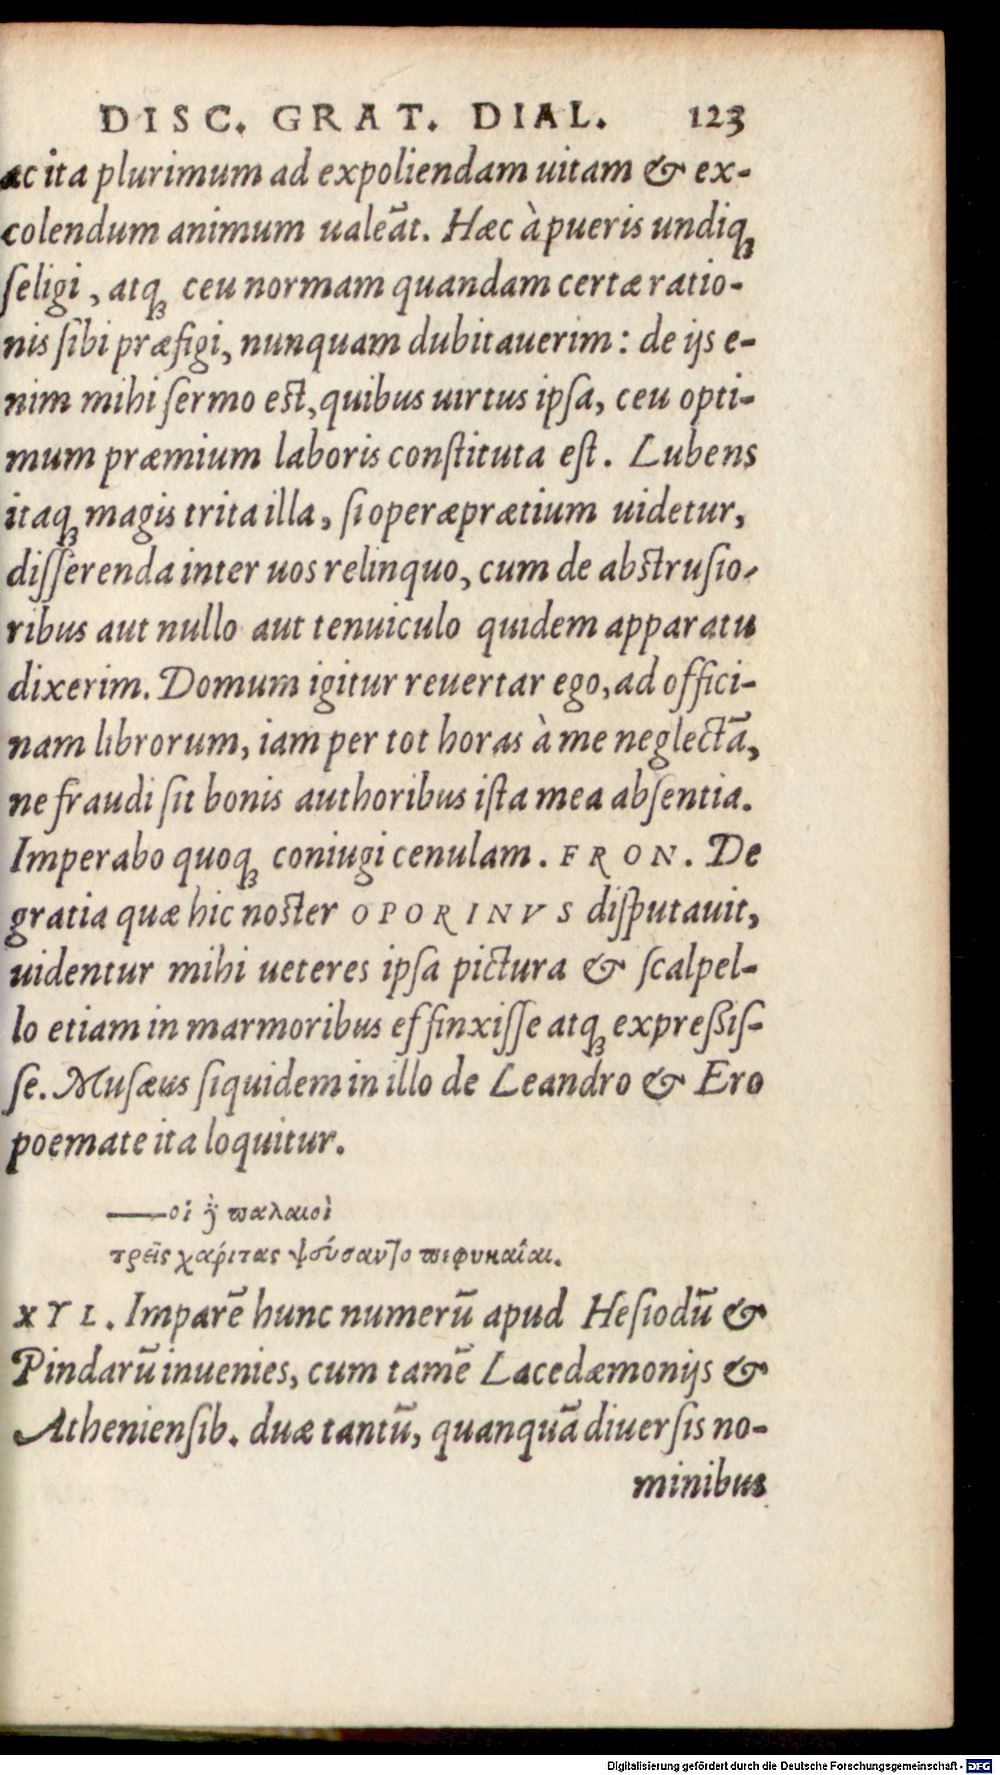 DISC. GRAT. DIAL. 123
ac ita plurimum ad expoliendam uitam & ex-
colendum animum ualeāt. Hæc à pueris undiqꝫ
ſeligi, atqꝫ ceu normam quandam certæ ratio-
nis ſibi præfigi, nunquam dubitauerim: de ijs e-
nim mihi ſermo eſt, quibus uirtus ipſa, ceu opti-
mum præmium laboris conſtituta eſt. Lubens
itaqꝫ magis trita illa, ſi operæprætium uidetur,
diſſerenda inter uos relinquo, cum de abſtruſio-
ribus aut nullo aut tenuiculo quidem apparatu
dixerim. Domum igitur reuertar ego, ad offici-
nam librorum, iam per tot horas à me neglectā,
ne fraudi ſit bonis authoribus iſta mea abſentia.
Imperabo quoqꝫ coniugi cenulam. FRON. De
gratia quæ hic noſter OPORINVS diſputauit,
uidentur mihi ueteres ipſa pictura & ſcalpel-
lo etiam in marmoribus effinxiſſe atqꝫ expreßiſ-
ſe. Muſæus ſiquidem in illo de Leandro & Ero
poemate ita loquitur.
——οἱ ἢ παλαιοὶ
τρεῖς χάριτας ψεύσαντο πεφυκαῖαι.
XYL. Imparē hunc numerū apud Heſiodū &
Pindarū inuenies, cum tamē Lacedæmonijs &
Athenienſib. duæ tantū, quanquā diuerſis no-
minibus
Digitalisierung gefördert durch die Deutsche Forschungsgemeinschaft - DFG